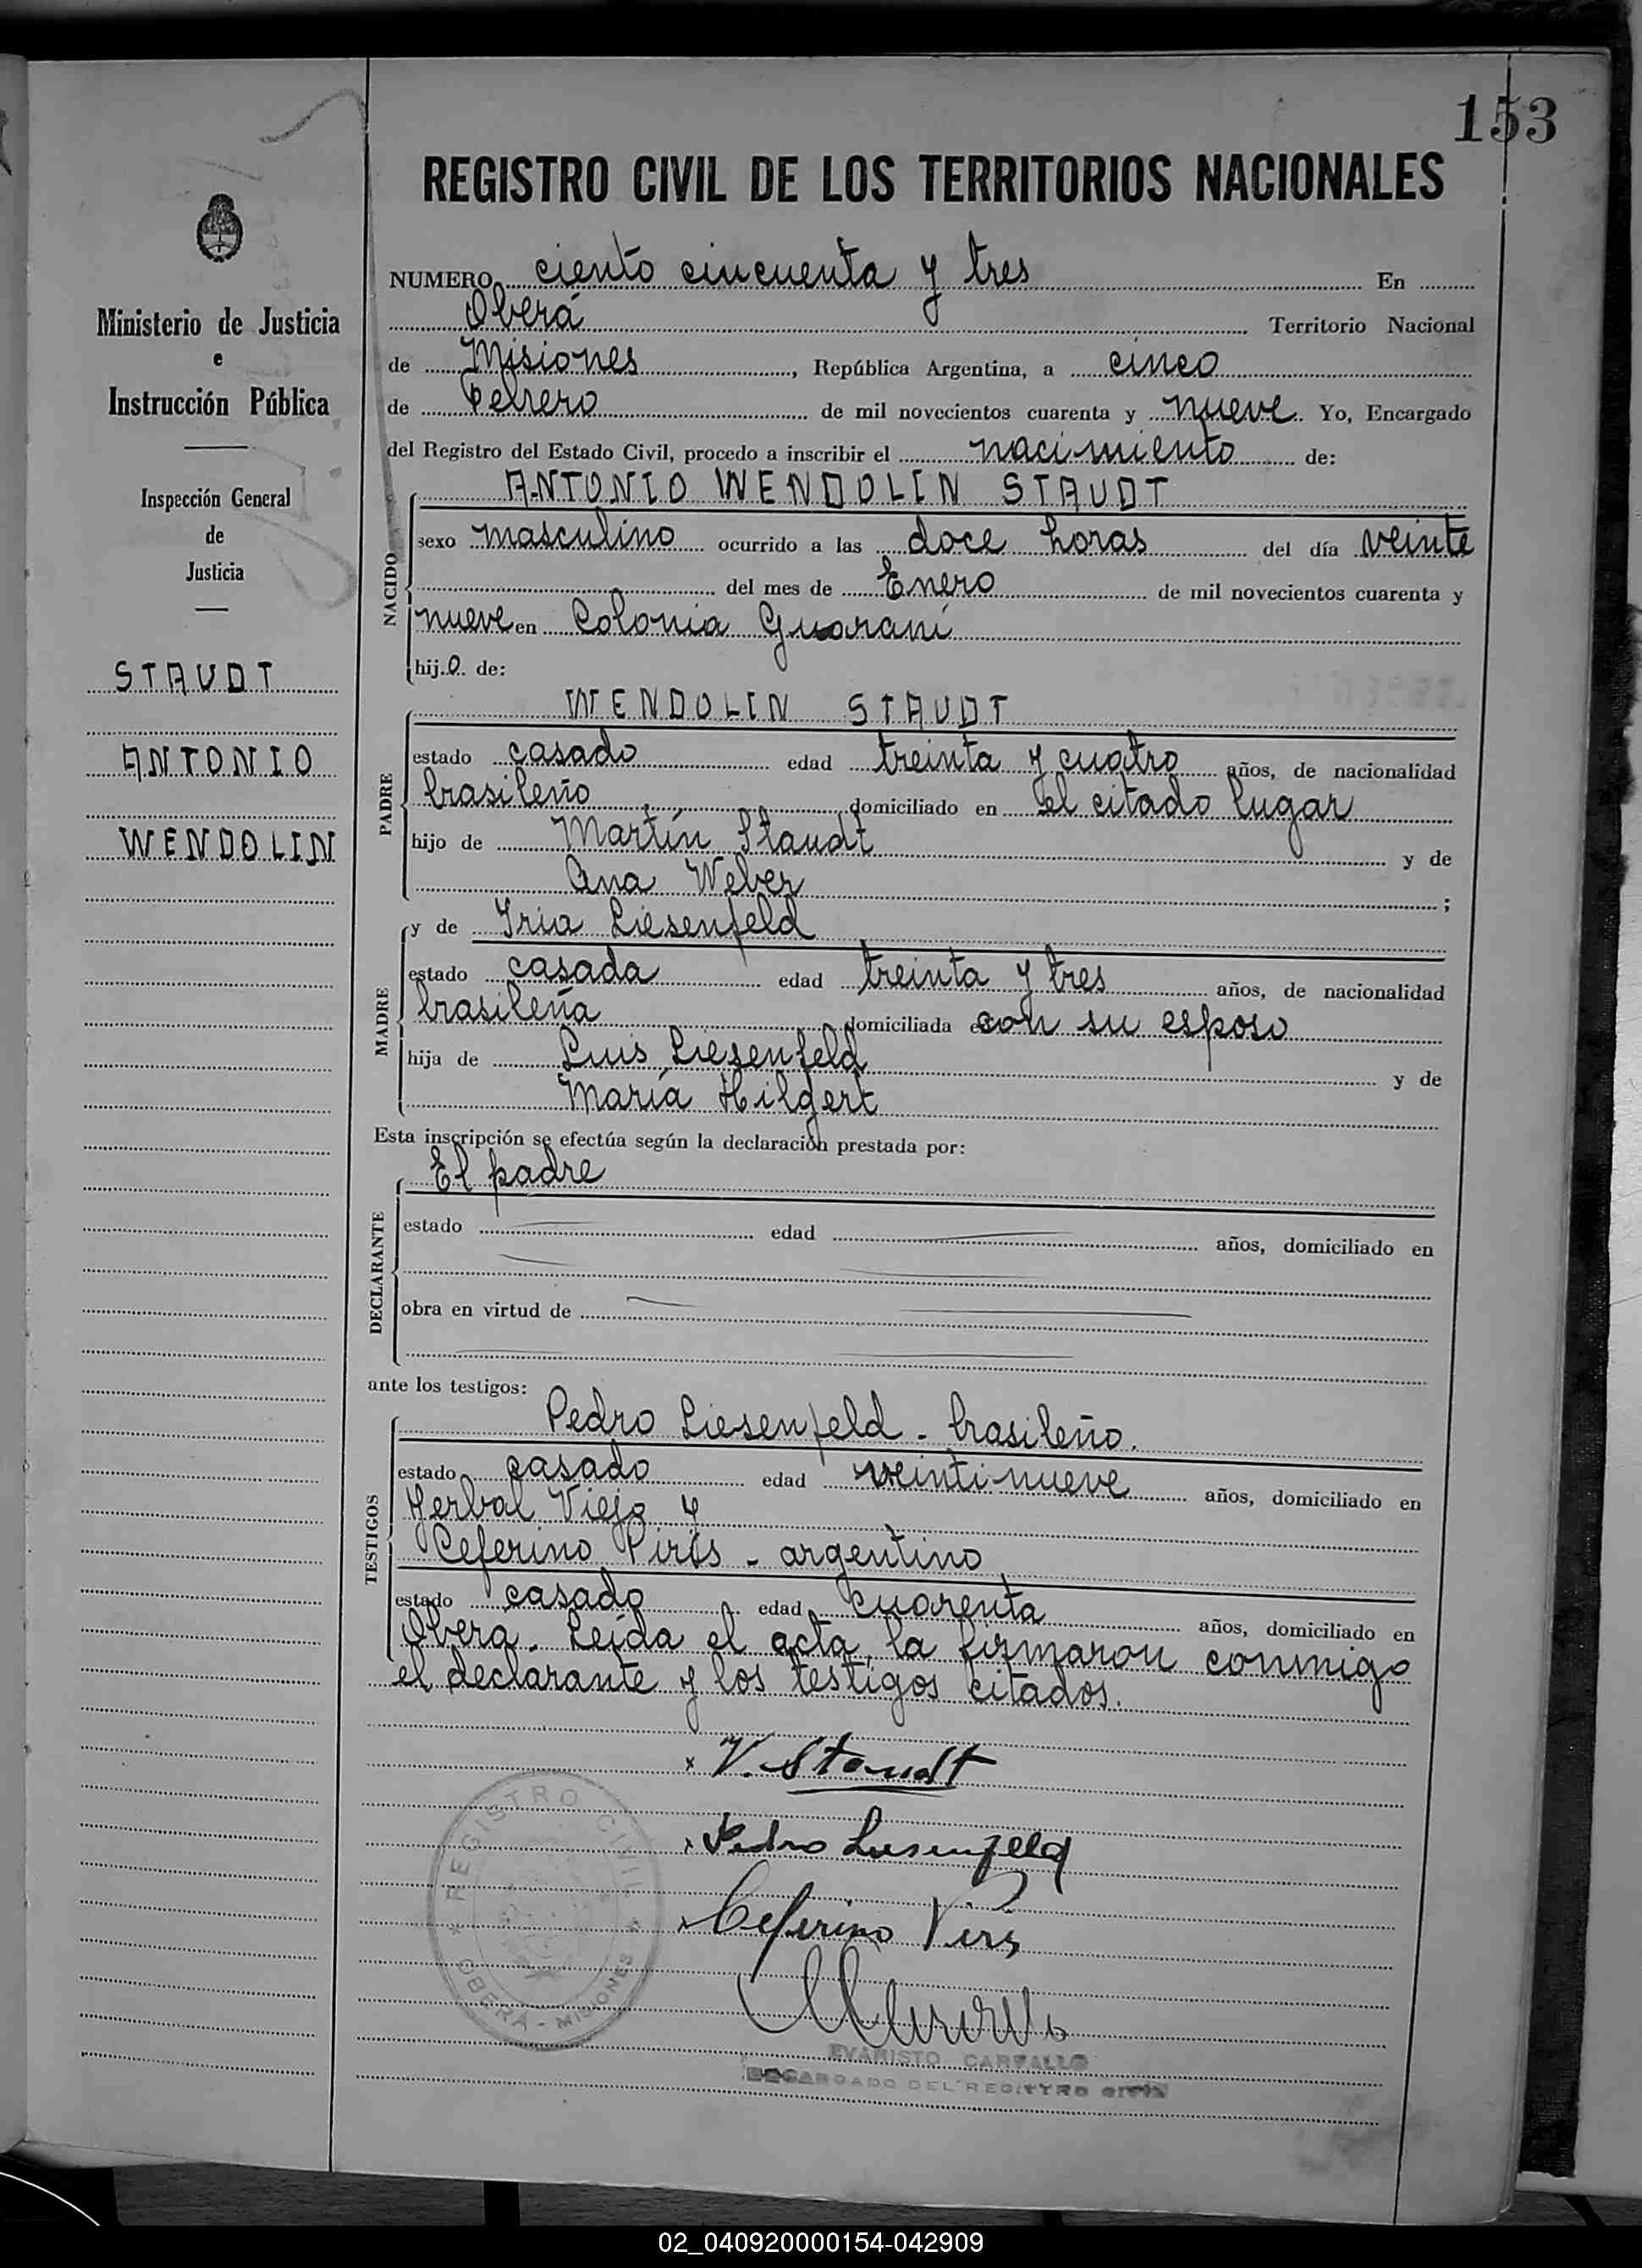 153
REGISTRO CIVIL DE LOS TERRITORIOS NACIONALES
Ministerio de Justicia
e
Instrucción Pública
Inspección General
de
Justicia
STAUDT
ANTONIO
WENDOLIN
NUMERO ciento cincuenta y tres En
Oberá Territorio Nacional
de Misiones, República Argentina, a cinco
de Febrero de mil novecientos cuarenta y nueve Yo, Encargado
del Registro del Estado Civil, procedo a inscribir el nacimiento de:
NACIDO
ANTONIO WENDOLIN STAUDT
sexo masculino ocurrido a las doce horas del día veinte
del mes de Enero de mil novecientos cuarenta y
nueve en Colonia Guaraní
hijo de:
PADRE
WENDOLIN STAUDT
estado casado edad treinta y cuatro años, de nacionalidad
brasileño, domiciliado en el citado lugar
hijo de Martín Staudt y de
Ana Weber ;
MADRE
y de Iria Liesenfeld
estado casada edad treinta y tres años, de nacionalidad
brasileña domiciliada con su esposo
hija de Luis Liesenfeld y de
María Hilgert
Esta inscripción se efectúa según la declaración prestada por:
DECLARANTE
El padre
estado edad años, domiciliado en
obra en virtud de
ante los testigos:
TESTIGOS
Pedro Liesenfeld - brasileño.
estado casado edad veintinueve años, domiciliado en
Yerbal Viejo y
Ceferino Pirís - argentino
estado casado edad cuarenta años, domiciliado en
Oberá. Leída el acta, la firmaron conmigo
el declarante y los testigos citados.
x V. Staudt
x Pedro Liesenfeld
x Ceferino Piris
REGISTRO CIVIL
OBERÁ - MISIONES
EVARISTO CARVALLO
ENCARGADO DEL REGISTRO CIVIL
02_040920000154-042909